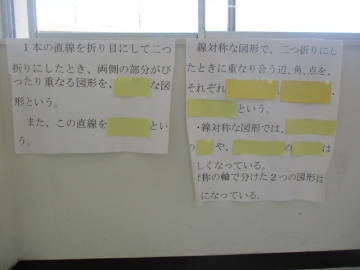 １本の直線を折り目にして二つ
折りにしたとき、両側の部分がぴ
ったり重なる図形を、　　　な図
形という。
また、この直線を　　　とい
う。
線対称な図形で、二つ折りにし
たときに重なり合う辺、角、点を、
それぞれ　　　、　　　、
という。
・線対称な図形では、
の　　や、　　　の　　は
しくなっている。
称の軸で分けた２つの図形は
になっている。